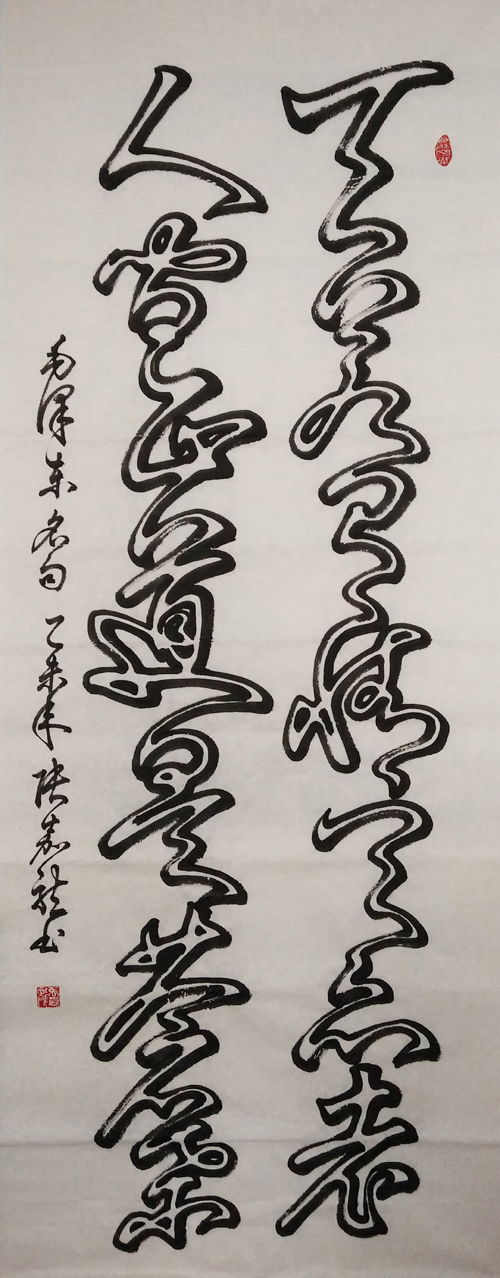 天若有情天亦老
人间正道是苍桑
毛泽东名句 乙未年 张嘉龙书